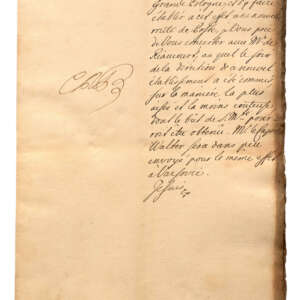 Grande Pologne, est y faire
établir a cet effet une nouvelle
route de Poste, je Vous prie
de Vous concerter avec Mr de
Riaucourt, au quel le soin
de la direction de ce nouvel
établissement a été commis
sur la maniere la plus
aisée et la moins couteuse
dont le but de S. Mté pour
ront être obtenu. Mr
Walter sera dans peu
envoyé pour le meme effet
à Varsovie.
Je suis